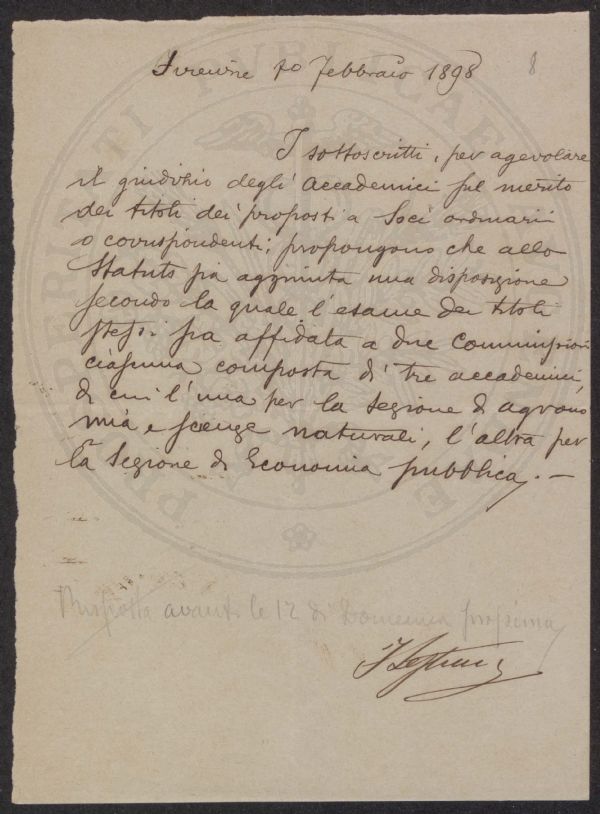 Firenze 20 Febbraio 1898
8
I sottoscritti, per agevolare
il giudizio degli accademici sul merito
dei titoli dei proposti a Soci ordinarii
o corrispondenti; propongono che allo
Statuto sia aggiunta una disposizione
secondo la quale l'esame dei titoli
stessi sia affidata a due Commissioni
ciascuna composta di tre accademici,
di cui l'una per la Sezione di agrono
mia e scienze naturali, l'altra per
la Sezione di Economia pubblica. –
Risposta avanti le 12 di Domenica prossima